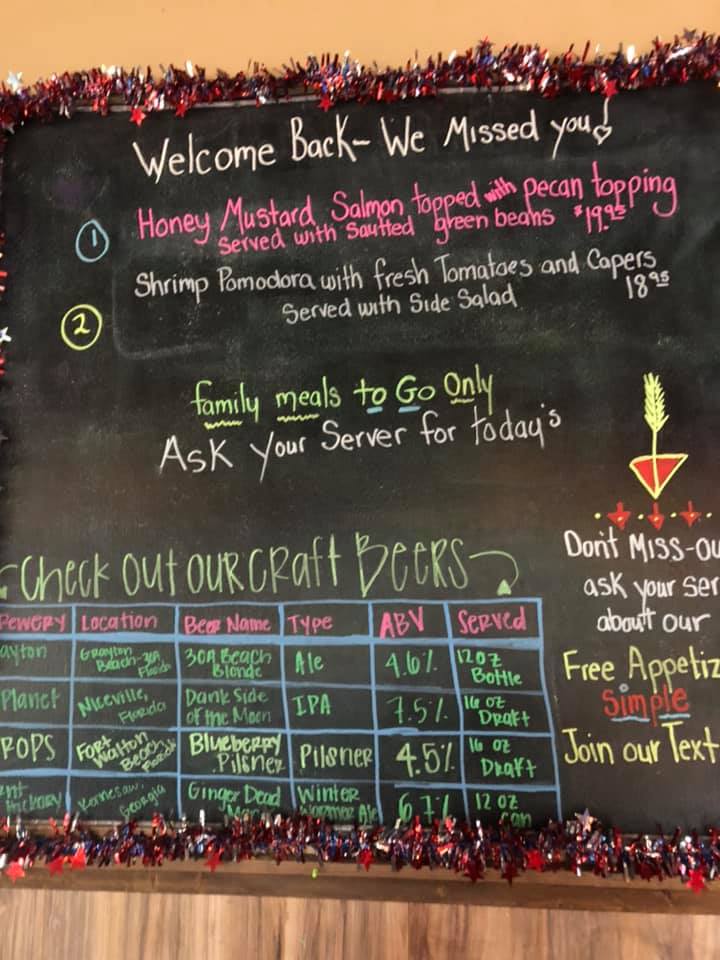 Welcome Back- We Missed you!
1 Honey Mustard Salmon topped with pecan topping
served with sautted green beans $19.95
Shrimp Pomodora with fresh Tomatoes and Capers
2 Served with Side Salad 18.95
family meals to Go Only
Ask Your Server for today's
Check out our craft Beers
ewery Location Beer Name Type ABV Served
ayton Grayton Beach-30A Florida 30A Beach Blonde Ale 4.6% 12 oz Bottle
Planet Niceville, Florida Dank Side of the Moon IPA 7.5% 16 oz Draft
POPS Fort Walton Beach, Florida Blueberry Pilsner Pilsner 4.5% 16 oz Draft
Kennesaw, Georgia Ginger Dead Man Winter Warmer Ale 6.7% 12 oz can
Don't Miss-ou
ask your ser
about our
Free Appetiz
Simple
Join our Text